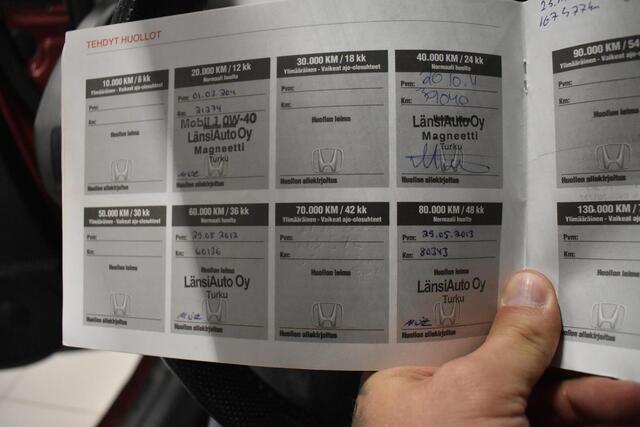 TEHDYT HUOLLOT
10.000 KM / 6 kk
Ylimääräinen - Vaikeat ajo-olosuhteet
Pvm:
Km:
Huollon leima
Huollon allekirjoitus
20.000 KM / 12 kk
Normaali huolto
Pvm: 01.02.2011
Km: 21274
Mobil 1 0W-40
LänsiAuto Oy
Magneetti
Turku
Huollon allekirjoitus
30.000 KM / 18 kk
Ylimääräinen - Vaikeat ajo-olosuhteet
Pvm:
Km:
Huollon leima
Huollon allekirjoitus
40.000 KM / 24 kk
Normaali huolto
Pvm: 20.10.11
Km: 39040
LänsiAuto Oy
Magneetti
Turku
Huollon allekirjoitus
50.000 KM / 30 kk
Ylimääräinen - Vaikeat ajo-olosuhteet
Pvm:
Km:
Huollon leima
Huollon allekirjoitus
60.000 KM / 36 kk
Normaali huolto
Pvm: 29.05.2012
Km: 60136
Huollon leima
LänsiAuto Oy
Turku
Huollon allekirjoitus
70.000 KM / 42 kk
Ylimääräinen - Vaikeat ajo-olosuhteet
Pvm:
Km:
Huollon leima
Huollon allekirjoitus
80.000 KM / 48 kk
Normaali huolto
Pvm: 29.05.2013
Km: 80343
Huollon leima
LänsiAuto Oy
Turku
Huollon allekirjoitus
90.000 KM / 54
Ylimääräinen - Vaikeat ajo
Pvm:
Km:
Huollon leima
Huollon allekirjoitus
130.000 KM /
Ylimääräinen - Vaikeat
Pvm:
Km:
Huollon leima
Huollon allekirjoitus